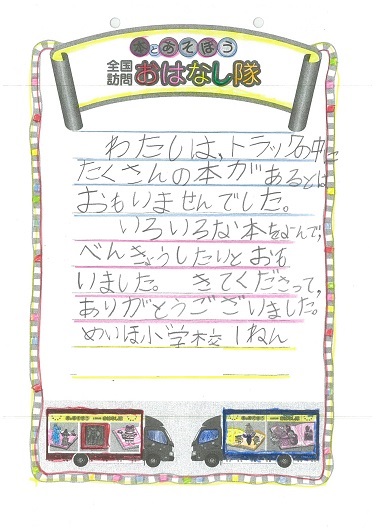 本とあそぼう
全国訪問おはなし隊
わたしは、トラックの中に
たくさんの本があるとは
おもいませんでした。
いろいろな本をよんで、
べんきょうしたいとおも
いました。きてくださって、
ありがとうございました。
めいほ小学校1ねん